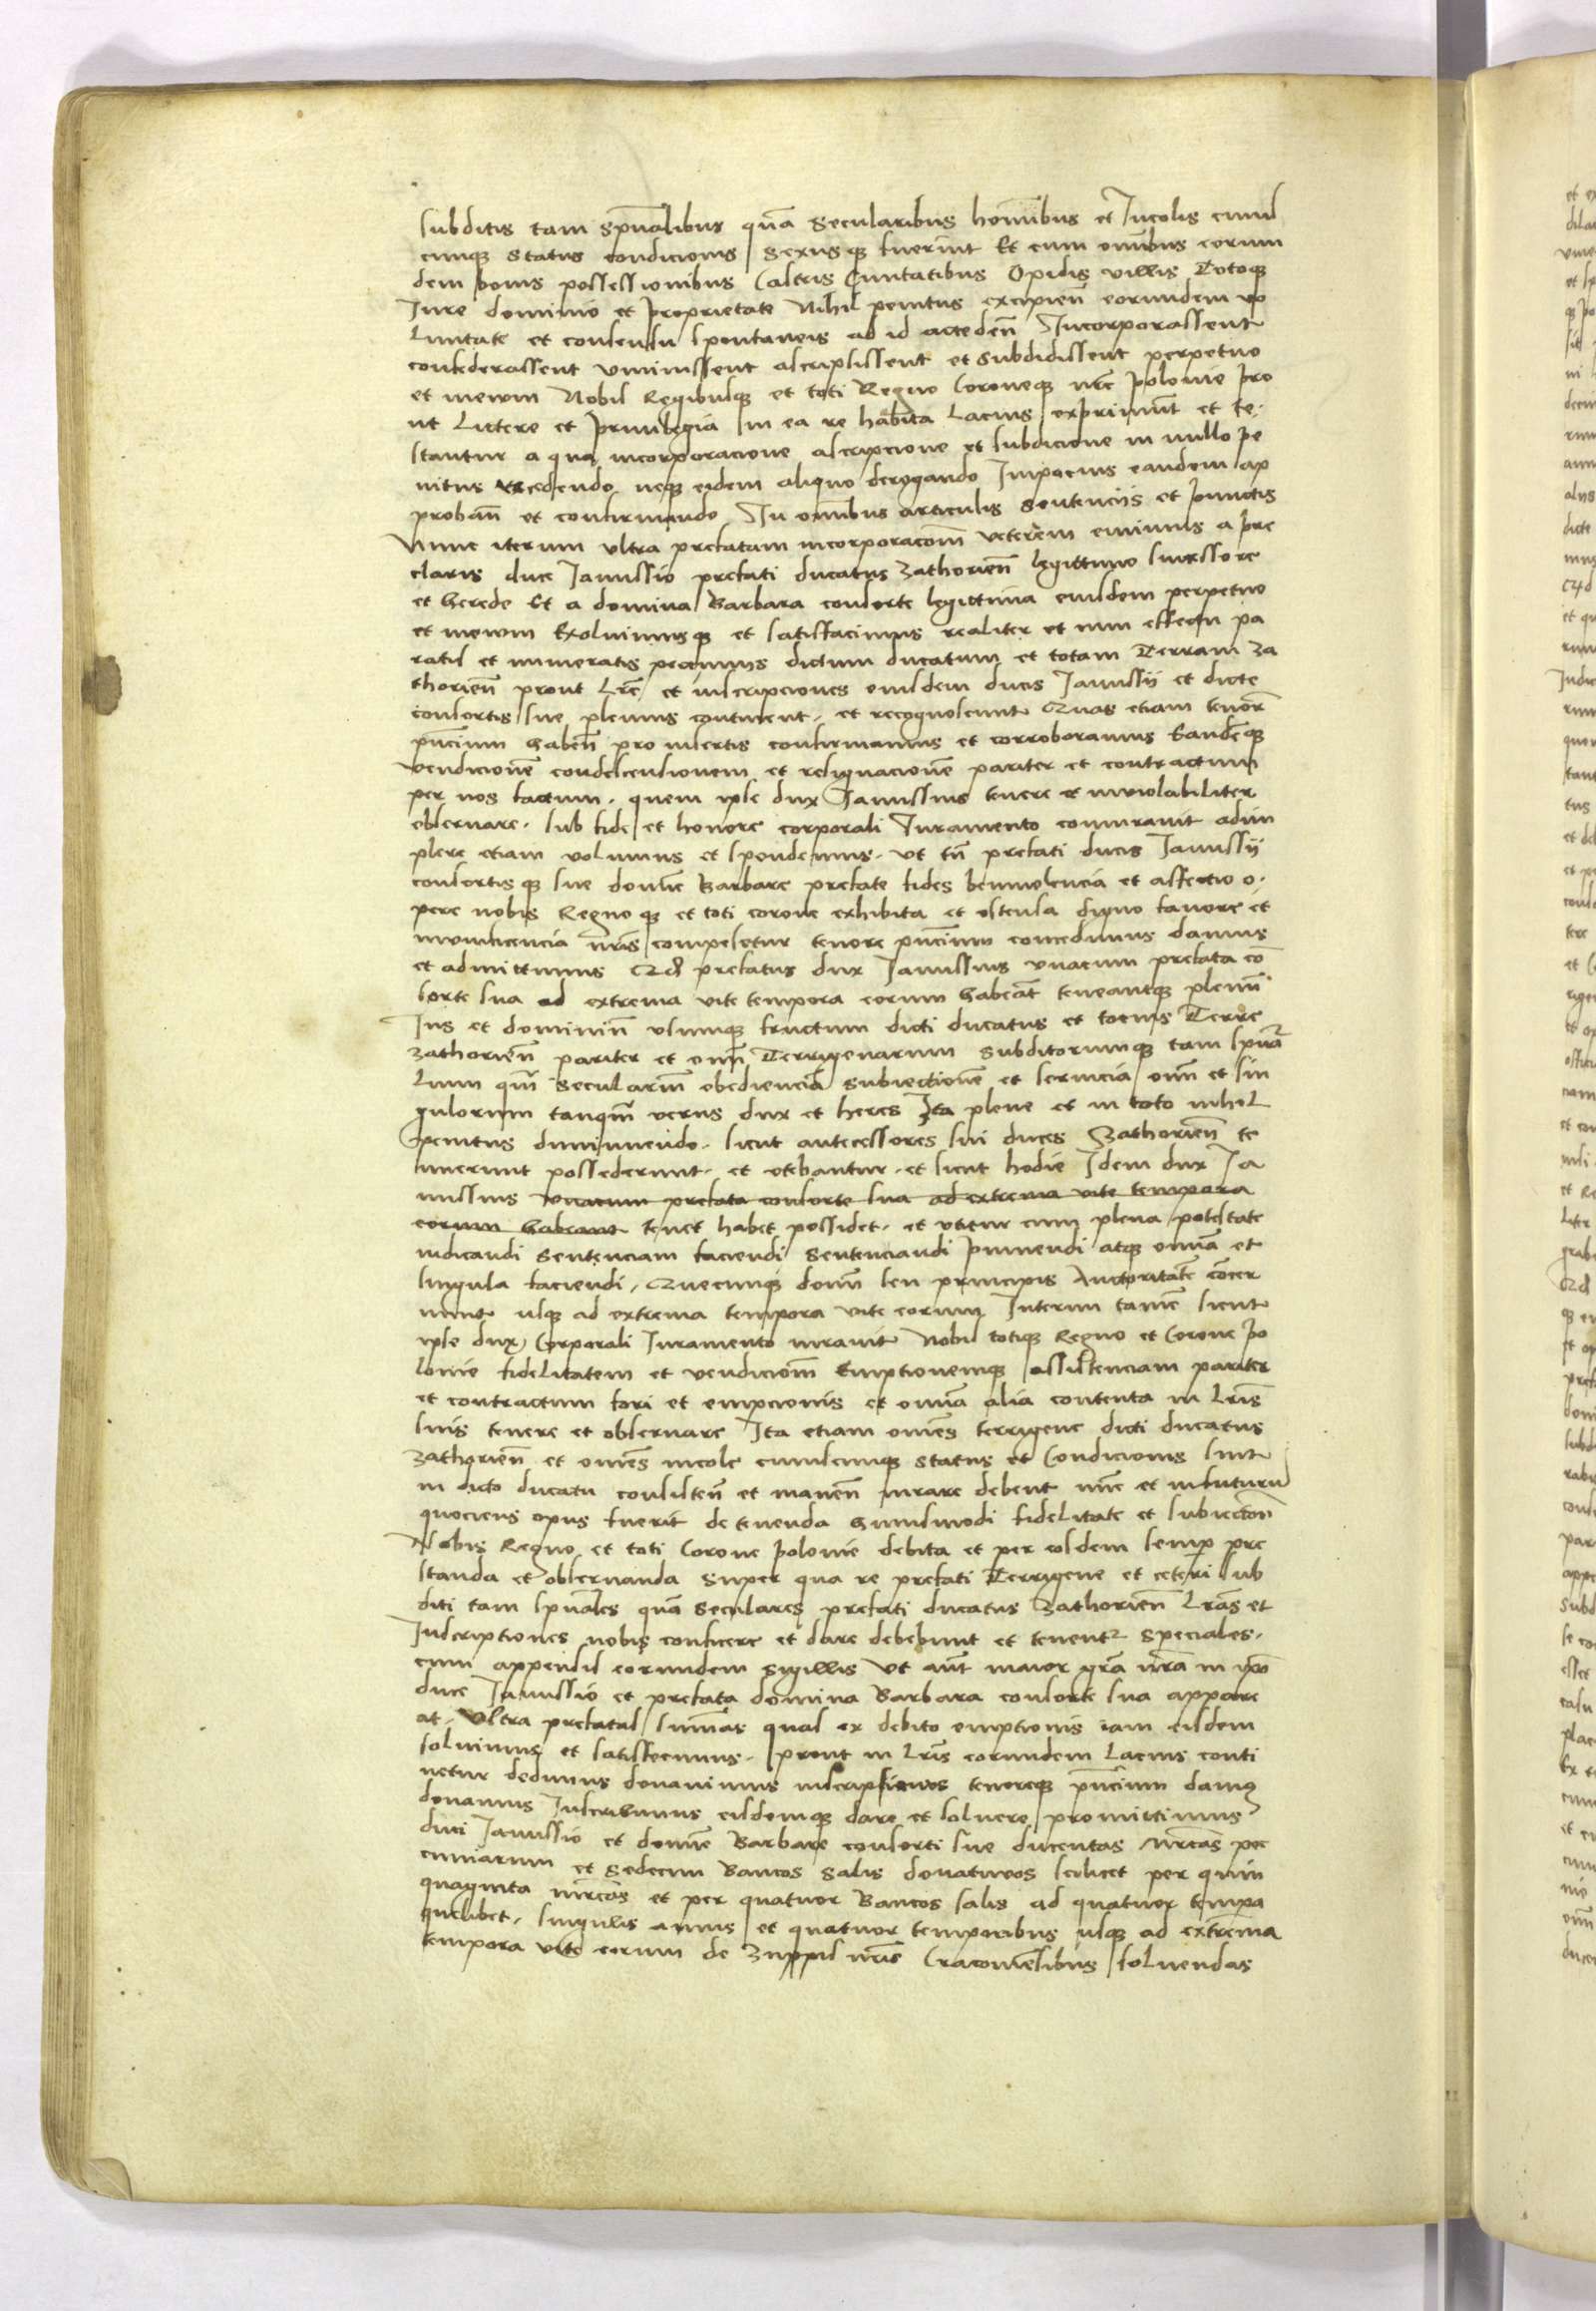 subditis tam spũalibus quã Secularibus hominibus et Incolis cuius
cumq̃ status condicionis Sexusq̃ fuerint Et cum omibus eorum
dem bonis possessionibus Castris Ciuitatibus Opidis villis Totoq̃
Iure dominio et proprietate Nihil penitus excipieñ eorundem vo
luntate et consensu spontaneis ad id accedeñ Incorporassent
confederassent vniuissent ascripsissent et Subdidissent perpetuo
et in ewm Nobis Regibusq̃ et toti Regno Coroneq̃ nr̃e polonie pro
ut Littere et priuilegia in ea re habita Lacius exprimunt et te
stantur a qua incorporacione ascripcione et subdicione in nullo pe
nitus recedendo neq̃ eidem aliquo derogando Impocius eandem ap
probañ et confirmando In omibus articulis Sentenciis et punctis
Nunc iterum vltra prefatam incorporacom̃ veterem emimus a pre
claris duce Janussio prefati ducatus Zathorieñ legittimo successore
et herede Et a domina Barbara consorte legittima eiusdem perpetuo
et in ewm Exoluimusq̃ et satisfacimus realiter et cum effectu pa
ratis et numeratis pecuniis dictum ducatum et totam Terram Za
thorieñ prout Lr̃e et inscripciones eiusdem ducis Janussii et dicte
consortis sue plenius continent et recognoscunt Quas etiam tenor̃
pñcium habeñ pro insertis confirmamus et corroboramus Eandẽq̃
vendicionẽ condescensionem et resignacionẽ pariter et contractum
per nos factum quem ipse dux Janussius tenere et inuiolabiliter
obseruare sub fide et honore corporali Iuramento coniurauit adim
plere etiam volumus et spondemus Vt tñ prefati ducis Janussii
consortisq̃ sue domĩe Barbare prefate fides beniuolencia et affectio o
pere nobis Regnoq̃ et toti corone exhibita et ostensa digno fauore et
munificencia nr̃is compensetur tenore pñcium concedimus damus
et admittimus Qd prefatus dux Janussius vnacum prefata cõ
sorte sua ad extrema vite tempora eorum habeãt teneantq̃ plenũ
Ius et dominiũ vsumq̃ fructum dicti ducatus et tocius Terre
Zathorieñ pariter et omĩ Terrigenarum Subditorumq̃ tam spũa
lium qm̃ Secularim̃ obedienciã subiectionẽ et seruicia omĩ et sin
gulorum tanqm̃ verus dux et heres Ita plene et in toto nihil
penitus diminuendo sicut antecessores sui duces Zathorieñ te
nuerunt possederunt et vtebantur et sicut hodie Idem dux Ja
nussius vnacum prefata consorte sua ad extrema vite tempora
eorum habeant tenet habet possidet et vtitur cum plena potestate
iudicandi Sentenciam faciendi Sentenciandi puniendi atq̃ omĩa et
singula faciendi Quecunq̃ domĩ seu principis Auctoritatẽ cõcer
nunt vsq̃ ad extrema tempora vite eorum Interim tamẽ sicut
ipse dux Corporali Iuramento iurauit Nobis totiq̃ Regno et Corone po
lonie fidelitatem et vendiciom̃ Emptionemq̃ assistenciam pariter
et contractum fori et empcionis et omĩa alia contenta in Lr̃is
suis tenere et obseruare Ita etiam omẽs terrigene dicti ducatus
Zathorieñ et omẽs incole cuiuscunq̃ status et Condicionis sint
in dicto ducatu consisteñ et maneñ iurare debent nũc et in futurũ
quociens opus fuerit de tenenda huiusmodi fidelitate et subiectioñ
Nobis Regno et toti Corone polonie debita et per eosdem semp̃ pre
standa et obseruanda Super qua re prefati Terrigene et ceteri sub
diti tam spũales quã Seculares prefati ducatus Zathorieñ Lr̃as et
Inscriptiones nobis conficere et dare debebunt et tenentur speciales
cum appensis eorundem sigillis Vt aũt maior gr̃a nr̃a in ipõ
duce Janussio et prefata domina Barbara consorte sua appare
at Vltra prefatas sum̃as quas ex debito emptionis iam eisdem
soluimus et satisfecimus prout in Lr̃is eorundem Lacius conti
netur dedimus donauimus inscripsimus tenoreq̃ pñcium damus
donamus Inscribimus eisdemq̃ dare et soluere promittimus
duci Janussio et domĩe Barbare consorti sue ducentas mr̃cas pec
cuniarum et Sedecim Bancos Salis donatiuos scilicet per quin
quaginta mr̃cas et per quatuor Bancos salis ad quatuor tempa
quelibet singulis annis et quatuor temporibus vsq̃ ad extrema
tempora vite eorum de Zuppis nr̃is Cracouiensibus soluendas